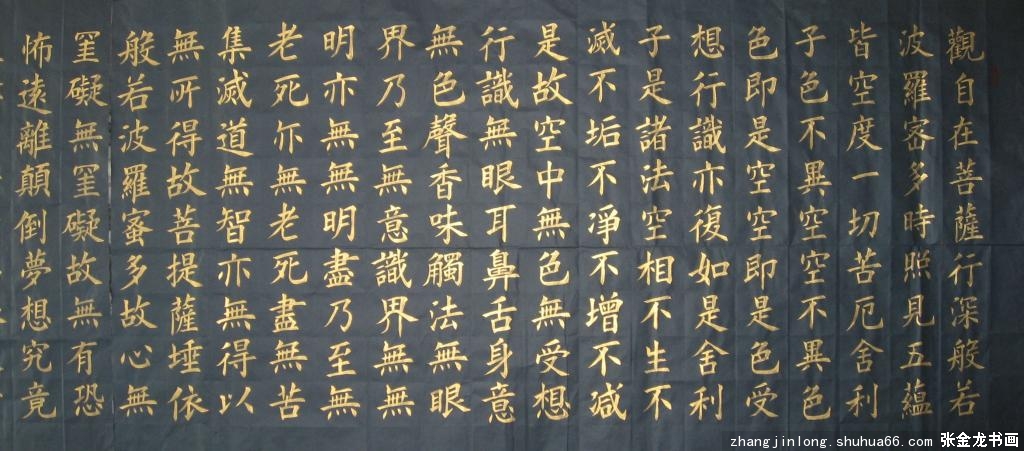 觀自在菩薩行深般若
波羅密多時照見五蘊
皆空度一切苦厄舍利
子色不異空空不異色
色即是空空即是色受
想行識亦復如是舍利
子是諸法空相不生不
滅不垢不凈不增不减
是故空中無色無受想
行識無眼耳鼻舌身意
無色聲香味觸法無眼
界乃至無意識界無無
明亦無無明盡乃至無
老死亦無老死盡無苦
集滅道無智亦無得以
無所得故菩提薩埵依
般若波羅蜜多故心無
罣礙無罣礙故無有恐
怖遠離顛倒夢想究竟
zhangjinlong.shuhua66.com 张金龙书画